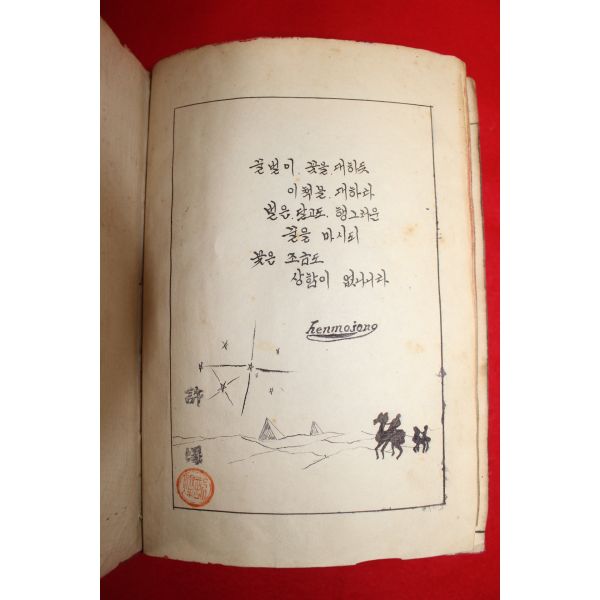 꿀벌이 꽃을 대하듯
이 책을 대하라
벌은 달고도 향그러운
꿀을 마시되
꽃은 조금도
상함이 없나니라
henmojong
許